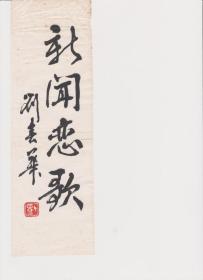 新闻恋歌
刘春华